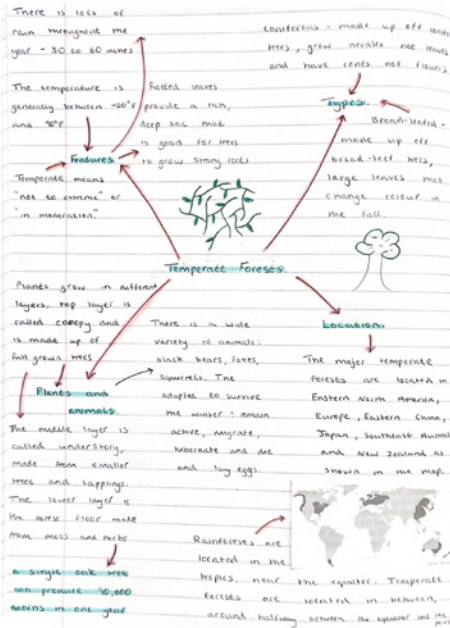 There is lots of
rain throughout the
year - 30 to 60 inches
The temperature is
generally between -20°F
and 90°F
Rotted leaves
provide a rich,
deep soil that
is good for trees
to grow strong roots
Features
Temperate means
"not to extreme" or
"in moderation."
coniferous - made up off
trees, grow needles not leaves
and have cones not flowers
Types.
Broad-leafed -
made up off
broad-leaf trees,
large leaves that
change colour in
the fall.
Temperate Forests.
Plants grow in different
layers, top layer is
called canopy and
is made up of
full grown trees
Plants and
animals.
The middle layer is
called understory,
made from smaller
trees and sapplings.
The lower layer is
the forest floor made
from moss and herbs
a single oak tree
can produce 90,000
acorns in one year
There is a wide
variety of animals:
black bears, foxes,
squirrels. The
adapted to survive
the winter: remain
active, migrate,
hibernate and die
and lay eggs.
Location.
The major temperate
forests are located in
Eastern North America,
Europe, Eastern China,
Japan, Southeast Australia
and New Zealand as
shown in the map.
Rainforests are
located in the
tropics, near the equator. Temperate
forests are located in between,
around halfway between the equator and the